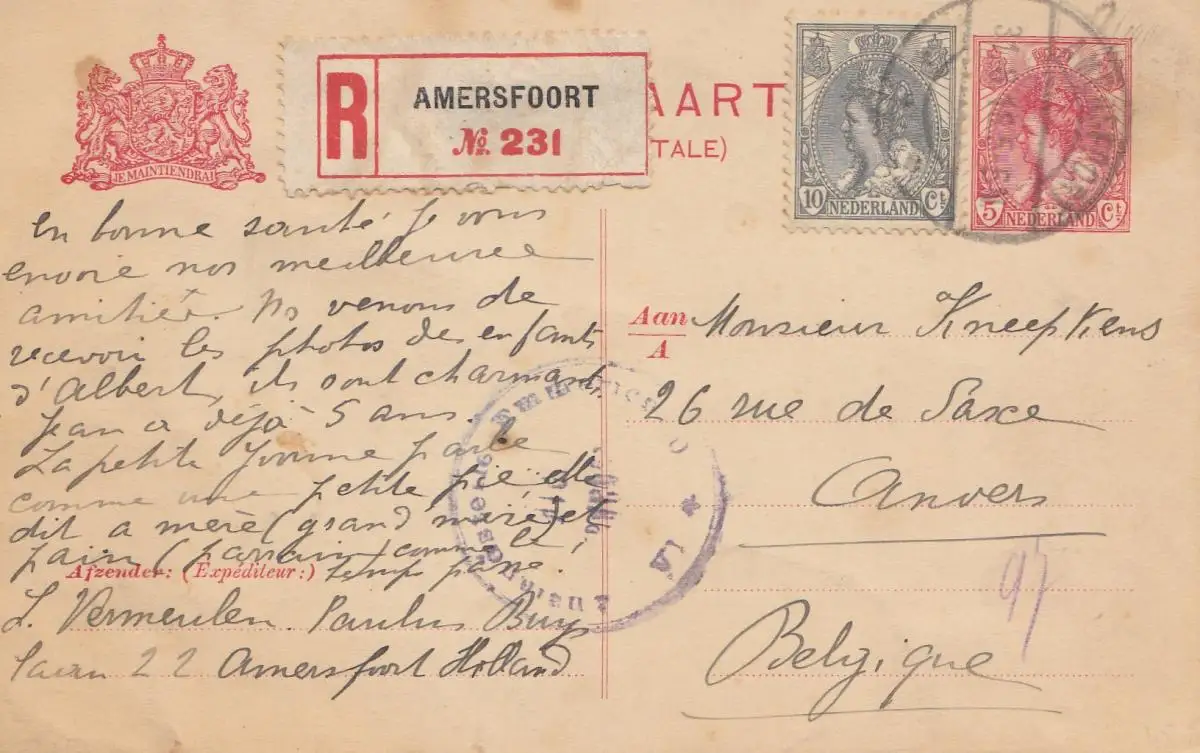 JE MAINTIENDRAI
R
AMERSFOORT
No. 231
AART
TALE)
10 NEDERLAND Ct.
5 NEDERLAND Ct.
en bonne santé je vous
envoie nos meilleures
amitiés. Ns venons de
recevoir les photos des enfants
d'Albert, ils sont charmants,
Jean a déjà 5 ans.
La petite Yvonne parle
comme une petite pie elle
dit a mère (grand'mère) et
pain (parrain) comme le
temps passe.
Afzender: (Expéditeur:)
L. Vermeulen. Paulus Buys
laan 22 Amersfort Holland
Aan
A
Monsieur Kneepkens
26 rue de Saxe
Anvers
Belgique
97